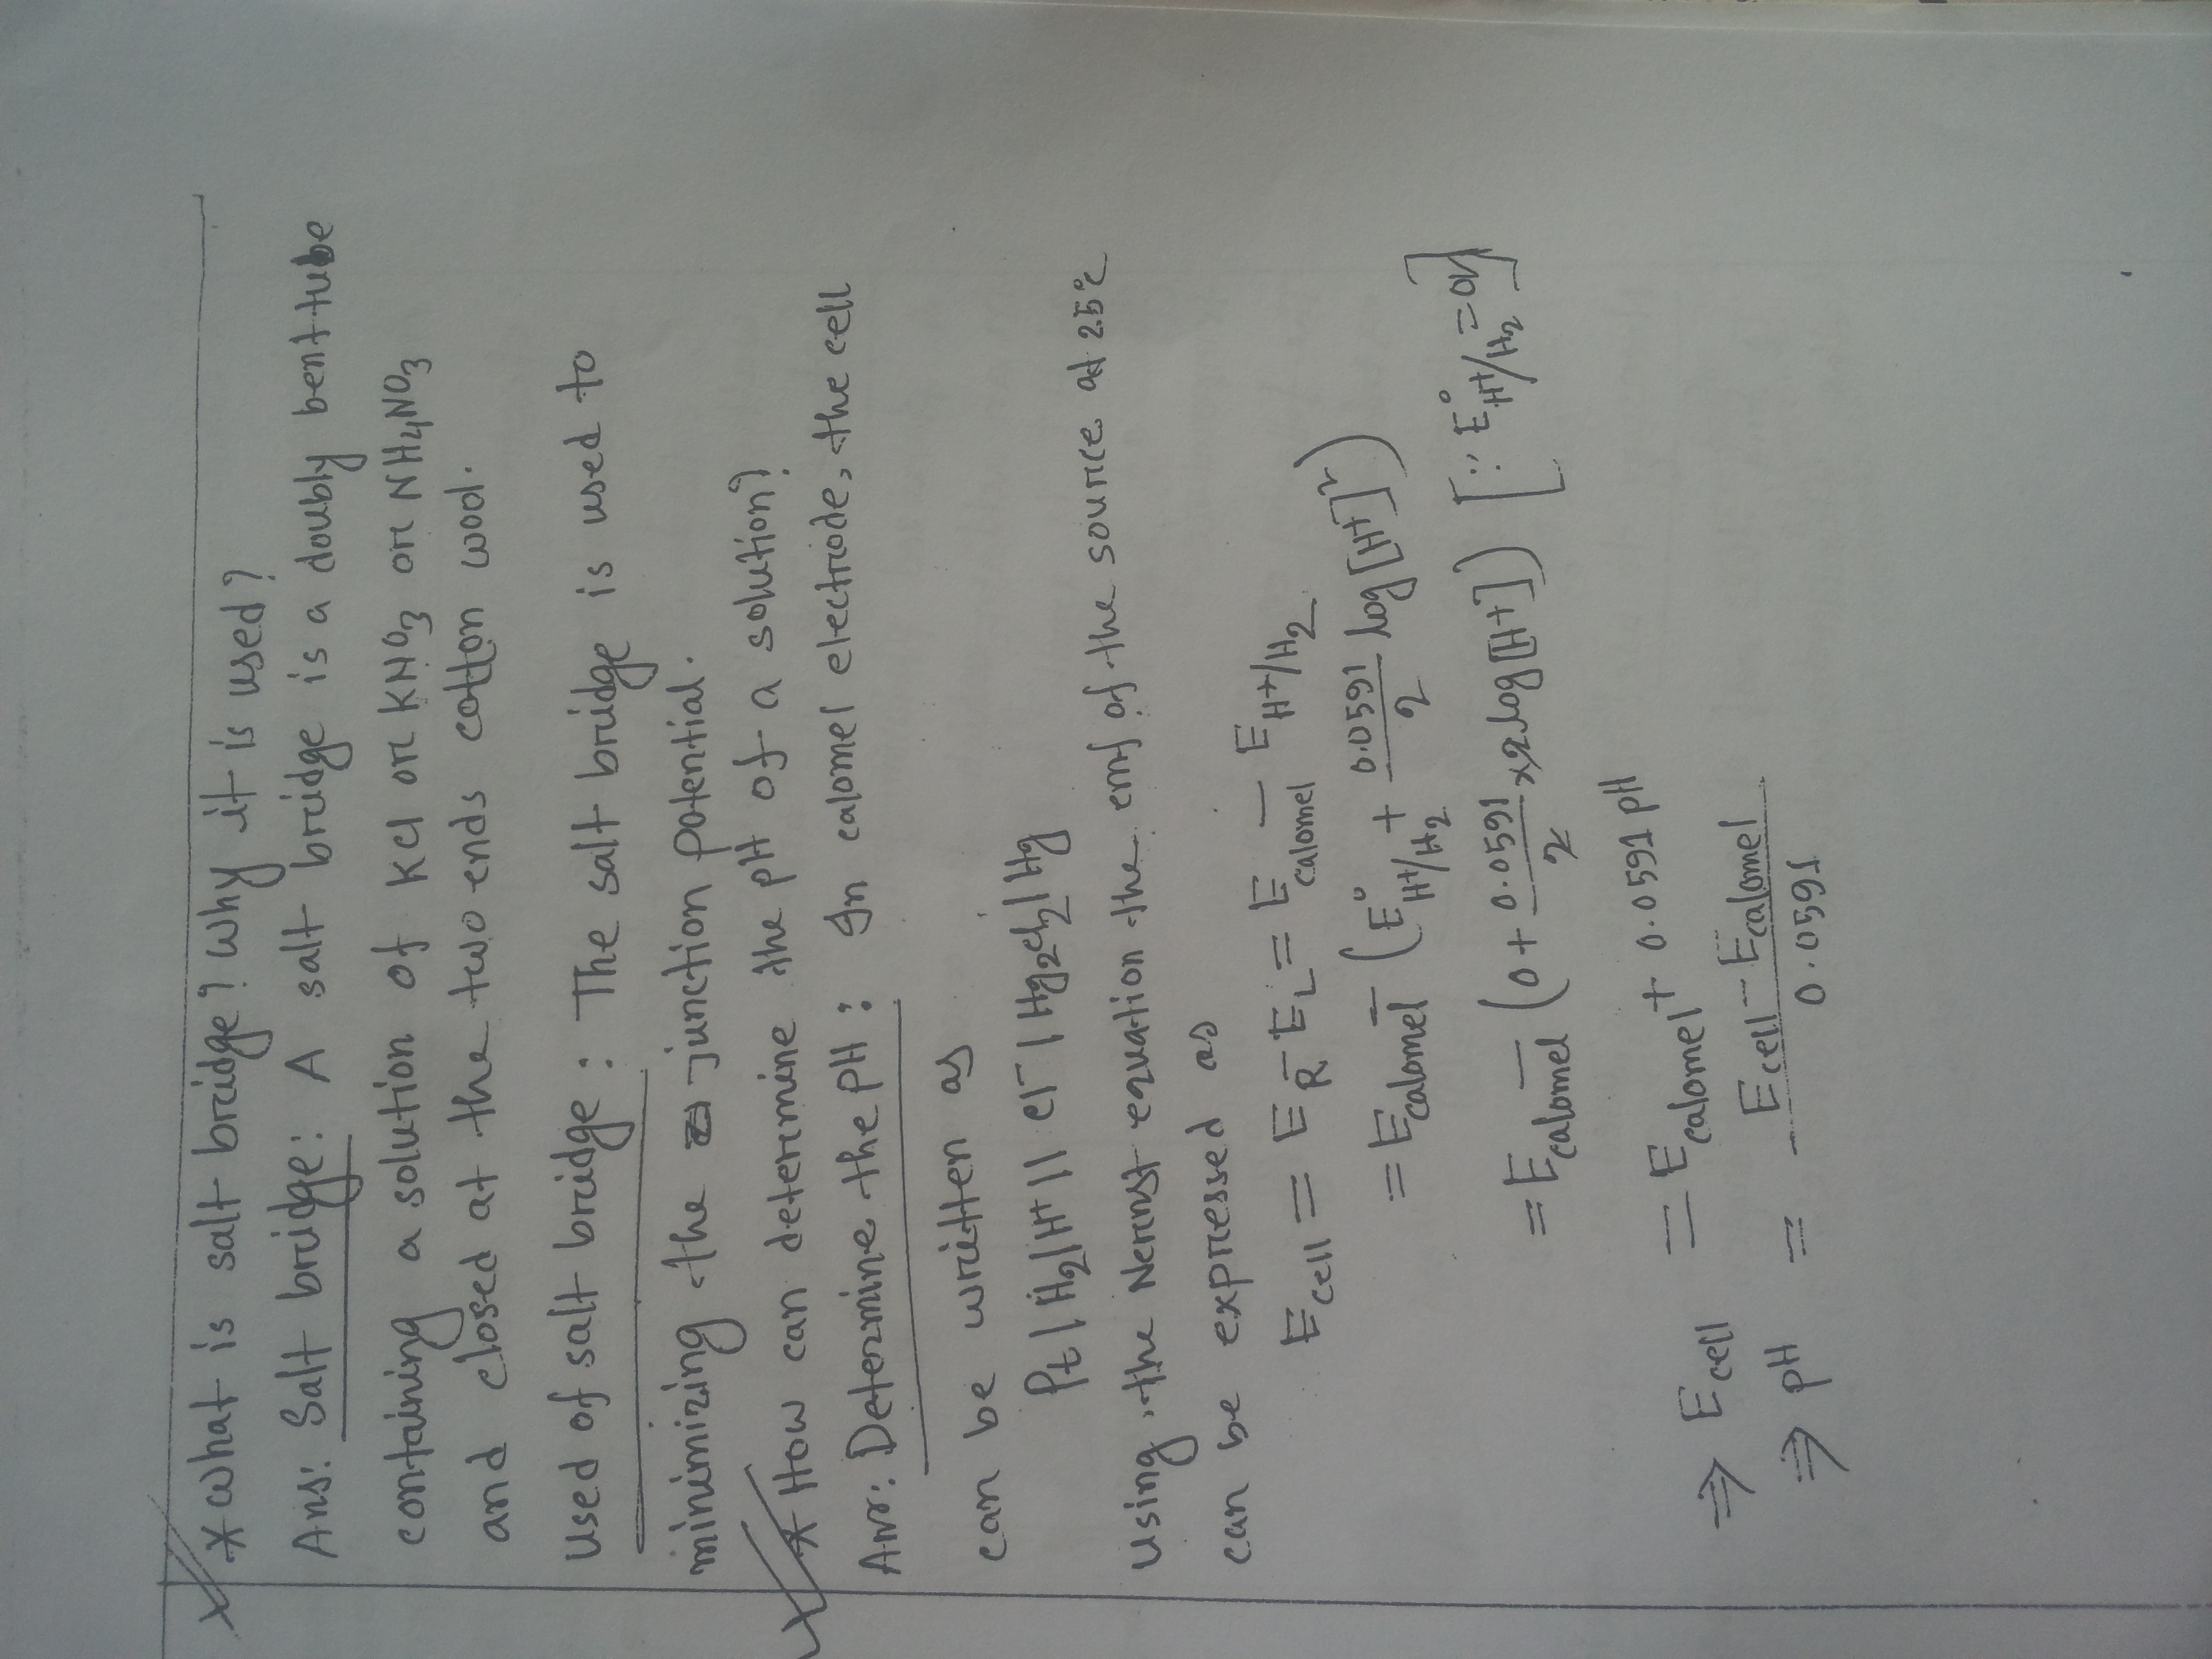 * What is salt bridge? Why it is used?
Ans: Salt bridge: A salt bridge is a doubly bent tube
containing a solution of KCl or KNO3 or NH4NO3
and closed at the two ends cotton wool.
Used of salt bridge: The salt bridge is used to
minimizing the junction potential.
* How can determine the pH of a solution?
Ans: Determine the pH: In calomel electrode, the cell
can be written as
Pt | H2 | H+ || Cl- | Hg2Cl2 | Hg
Using the Nernst equation the emf of the source at 25°C
can be expressed as
Ecell = ER - EL = Ecalomel - EH+/H2
= Ecalomel - (E°H+/H2 + 0.0591/2 log[H+]²)
= Ecalomel - (0 + 0.0591/2 × 2log[H+]) [∵ E°H+/H2 = 0V]
⇒ Ecell = Ecalomel + 0.0591 pH
⇒ pH = Ecell - Ecalomel / 0.0591